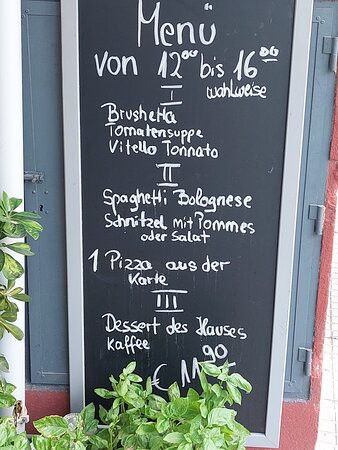 Menü
von 12⁰⁰ bis 16⁰⁰
wahlweise
I
Brushetta
Tomatensuppe
Vitello Tonnato
II
Spaghetti Bolognese
Schnitzel mit Pommes
oder Salat
1 Pizza aus der
Karte
III
Dessert des Hauses
Kaffee
€ 11⁹⁰